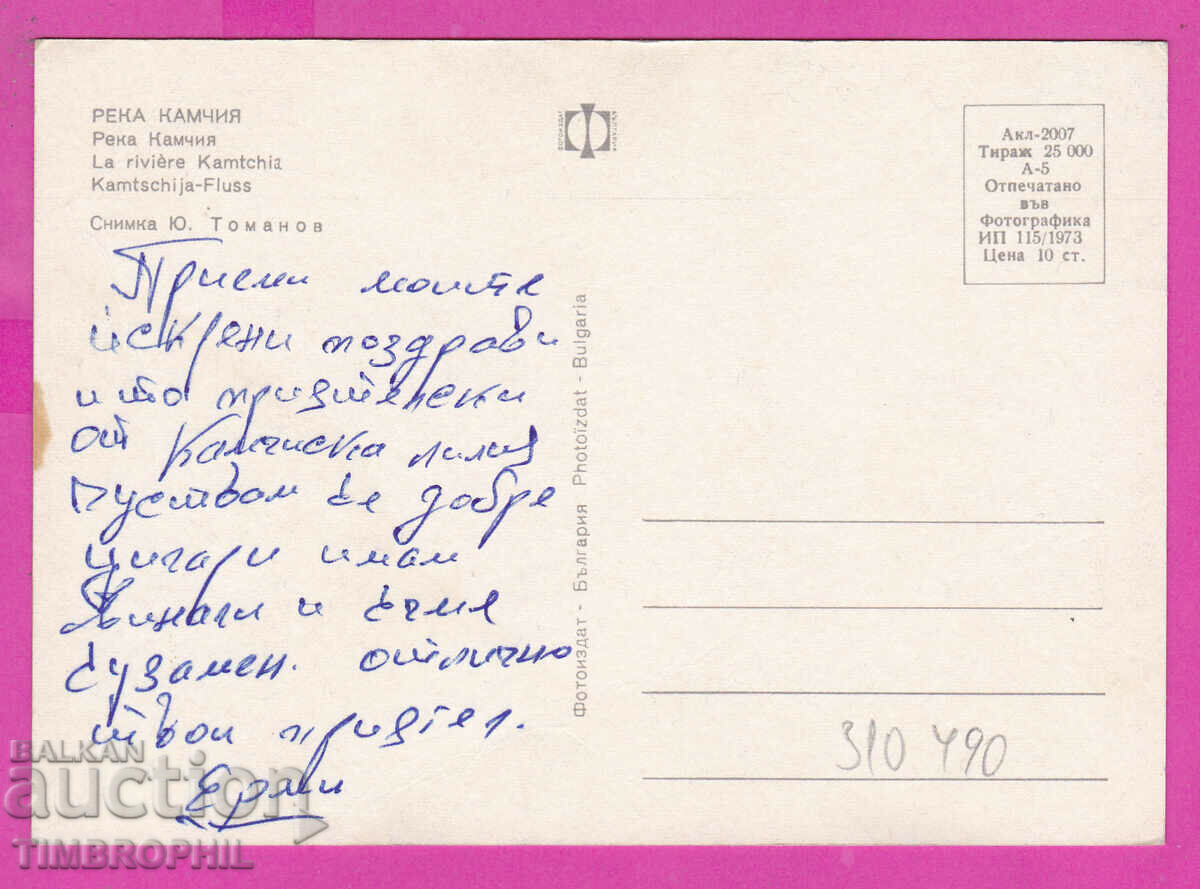 РЕКА КАМЧИЯ
Река Камчия
La rivière Kamtchia
Kamtschija-Fluss
Снимка Ю. Томанов
ФОТОИЗДАТ БЪЛГАРИЯ
Акл-2007
Тираж 25 000
А-5
Отпечатано
във
Фотографика
ИП 115/1973
Цена 10 ст.
Приеми моите
искрени поздрави
и то приятелски
от Камчиска лилия
Чуствам се добре
цигари имам
Винаги и съмя
отлично
твои приятел.
Фотоиздат - България Photoïzdat - Bulgaria
310 490
BALKAN
auction
TIMBROPHIL